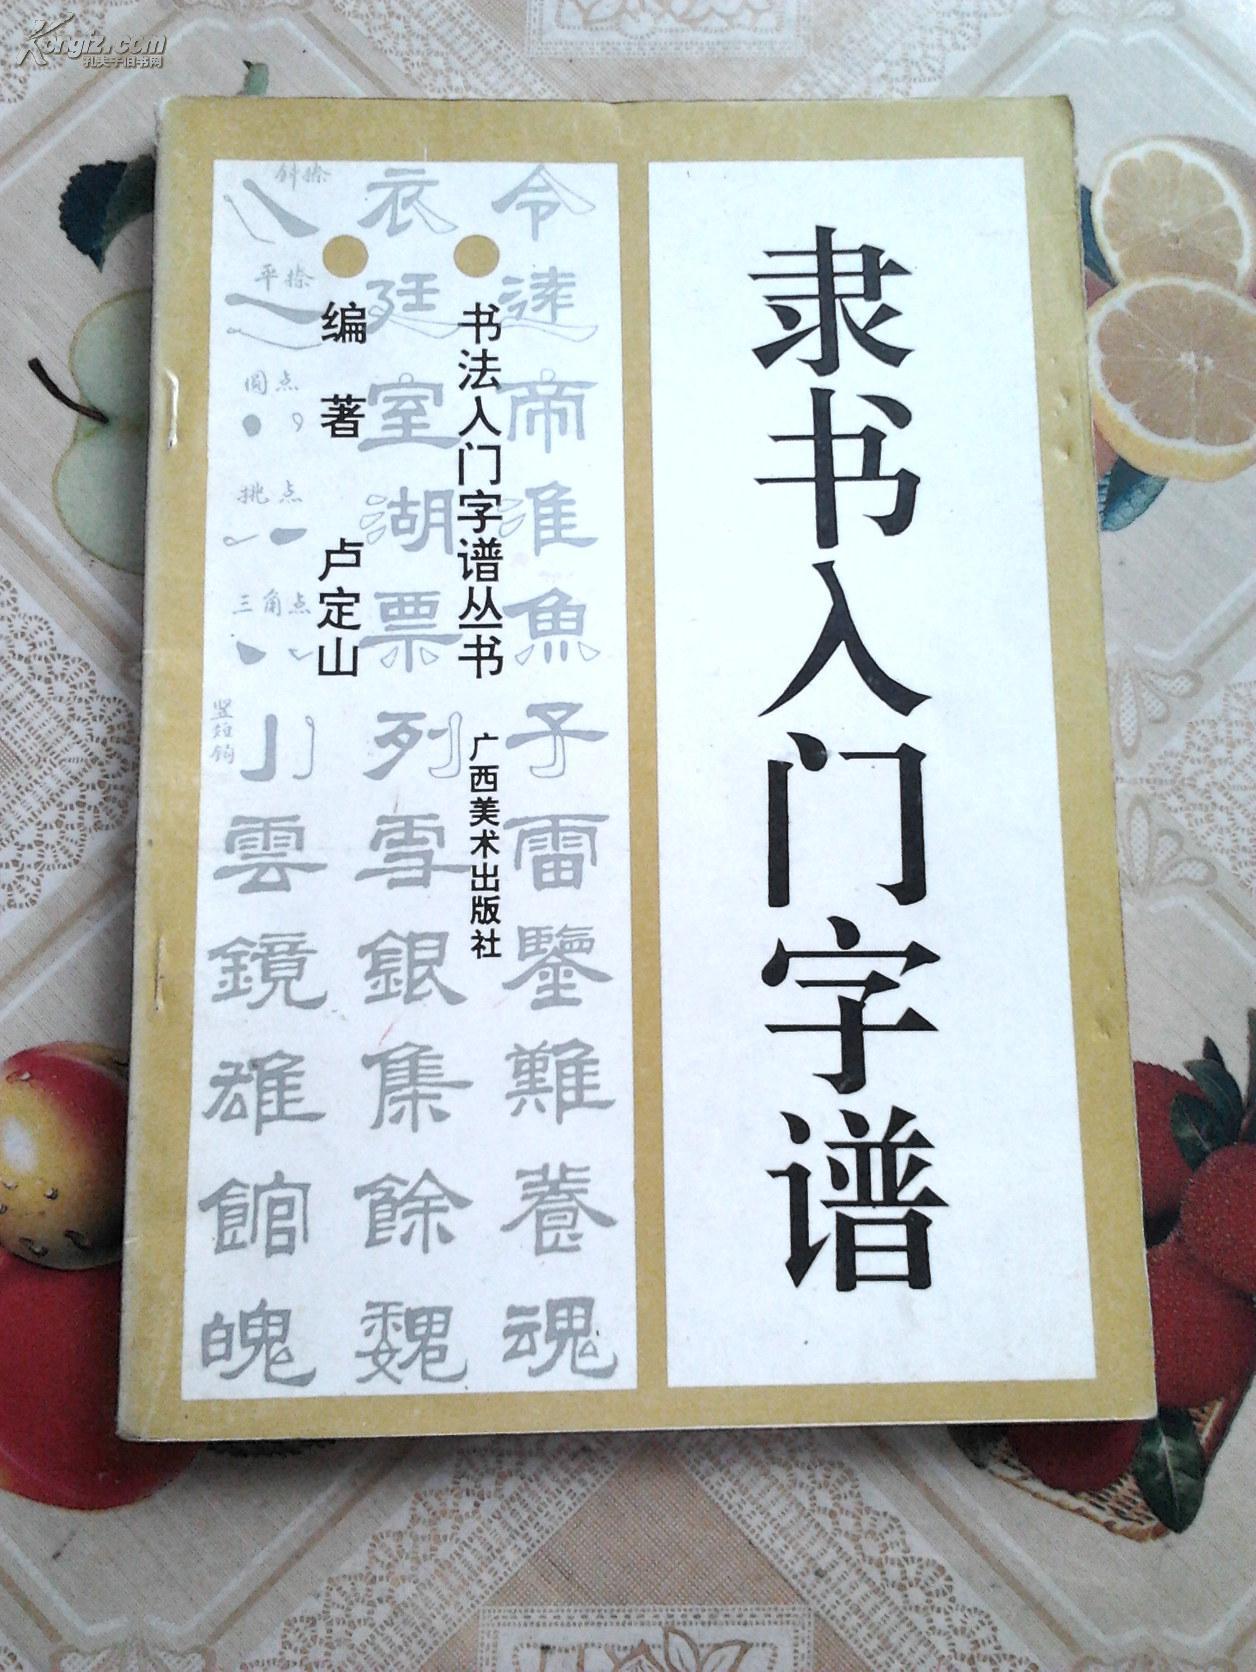 Kongfz.com
孔夫子旧书网
隶书入门字谱
书法入门字谱丛书
广西美术出版社
编著 卢定山
令 衣 斜捺
逮 廷 平捺
帝 室 圆点
淮 湖 挑点
魚 票 三角点
子 列 竖短钩
雷 雪 雲
鑒 銀 鏡
難 集 雄
養 餘 館
魂 魏 魄